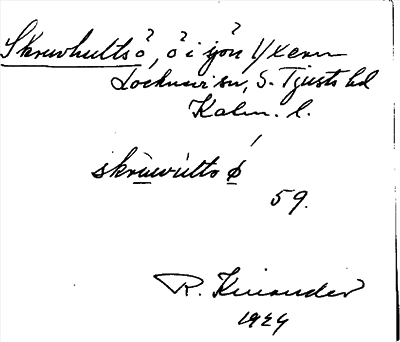 Skruvhultsö, ö i sjön Yxern
Locknevi sn, S. Tjusts hd
Kalm. l.
skrùwùlts ǿ
59.
R. Kinander
1929